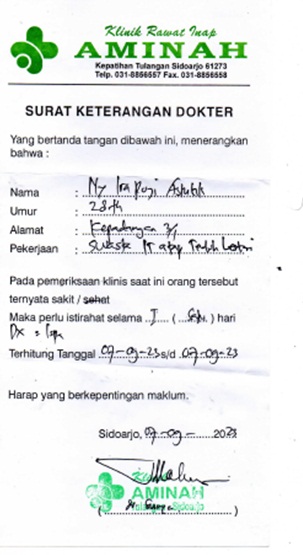 Klinik Rawat Inap
AMINAH
Kepatihan Tulangan Sidoarjo 61273
Telp. 031-8856557 Fax. 031-8856558
SURAT KETERANGAN DOKTER
Yang bertanda tangan dibawah ini, menerangkan
bahwa :
Nama : Ny Ira Puji Astutik
Umur : 28 th
Alamat :
Pekerjaan : Swasta PT
Pada pemeriksaan klinis saat ini orang tersebut
ternyata sakit / sehat
Maka perlu istirahat selama I ( Satu ) hari
Dx =
Terhitung Tanggal 07-09-23 s/d 07-09-23
Harap yang berkepentingan maklum.
Sidoarjo, 07-09- 2023
AMINAH
Tulangan Sidoarjo
( )